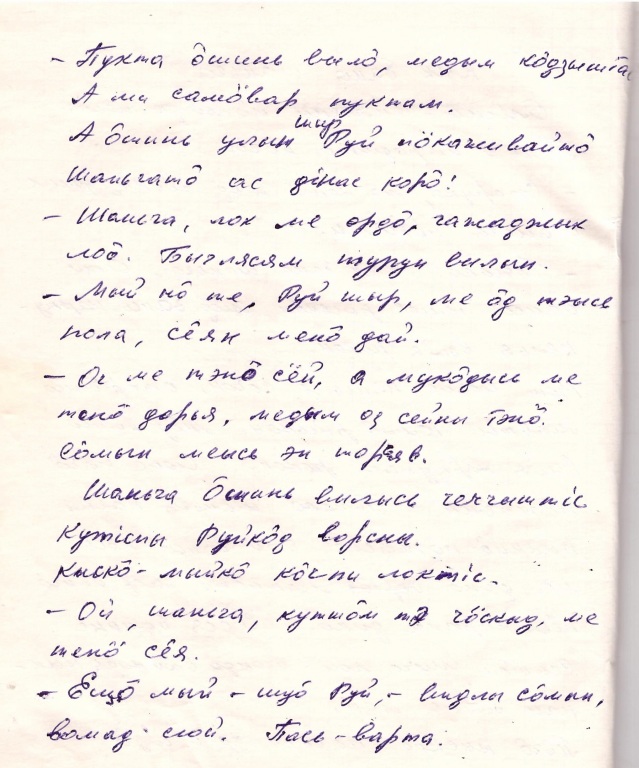 - Пукта ӧшинь вылӧ, медым кӧдзыштас
А ми самӧвар пуктам.
А ӧшинь улын шыр Руй мӧкаживайтӧ
Шаньгатӧ ас дінас корӧ!
- Шаньга, лок ме ордӧ, гажаджык
лоӧ. Быглясям турун вылын.
- Мый нӧ те, Руй шыр, ме ӧд тэысь
пола, сёян менӧ дай.
- Ог ме тэнӧ сёй, а мукӧдысь ме
тэнӧ дорья, медым оз сейны тэнӧ.
Сӧмын меысь эн торъяв.
Шаньга ӧшинь вылысь чеччыштіс
Кутісны Руйкӧд ворсны.
Кыскӧ-мыйкӧ кӧчпи локтіс.
- Ой, шаньга, кутшӧм тэ чӧскыд, ме
тенӧ сёя.
- Ещӧ мый - шуӧ Руй, - видлы сӧмын,
вомад сюй. Пась-варта.